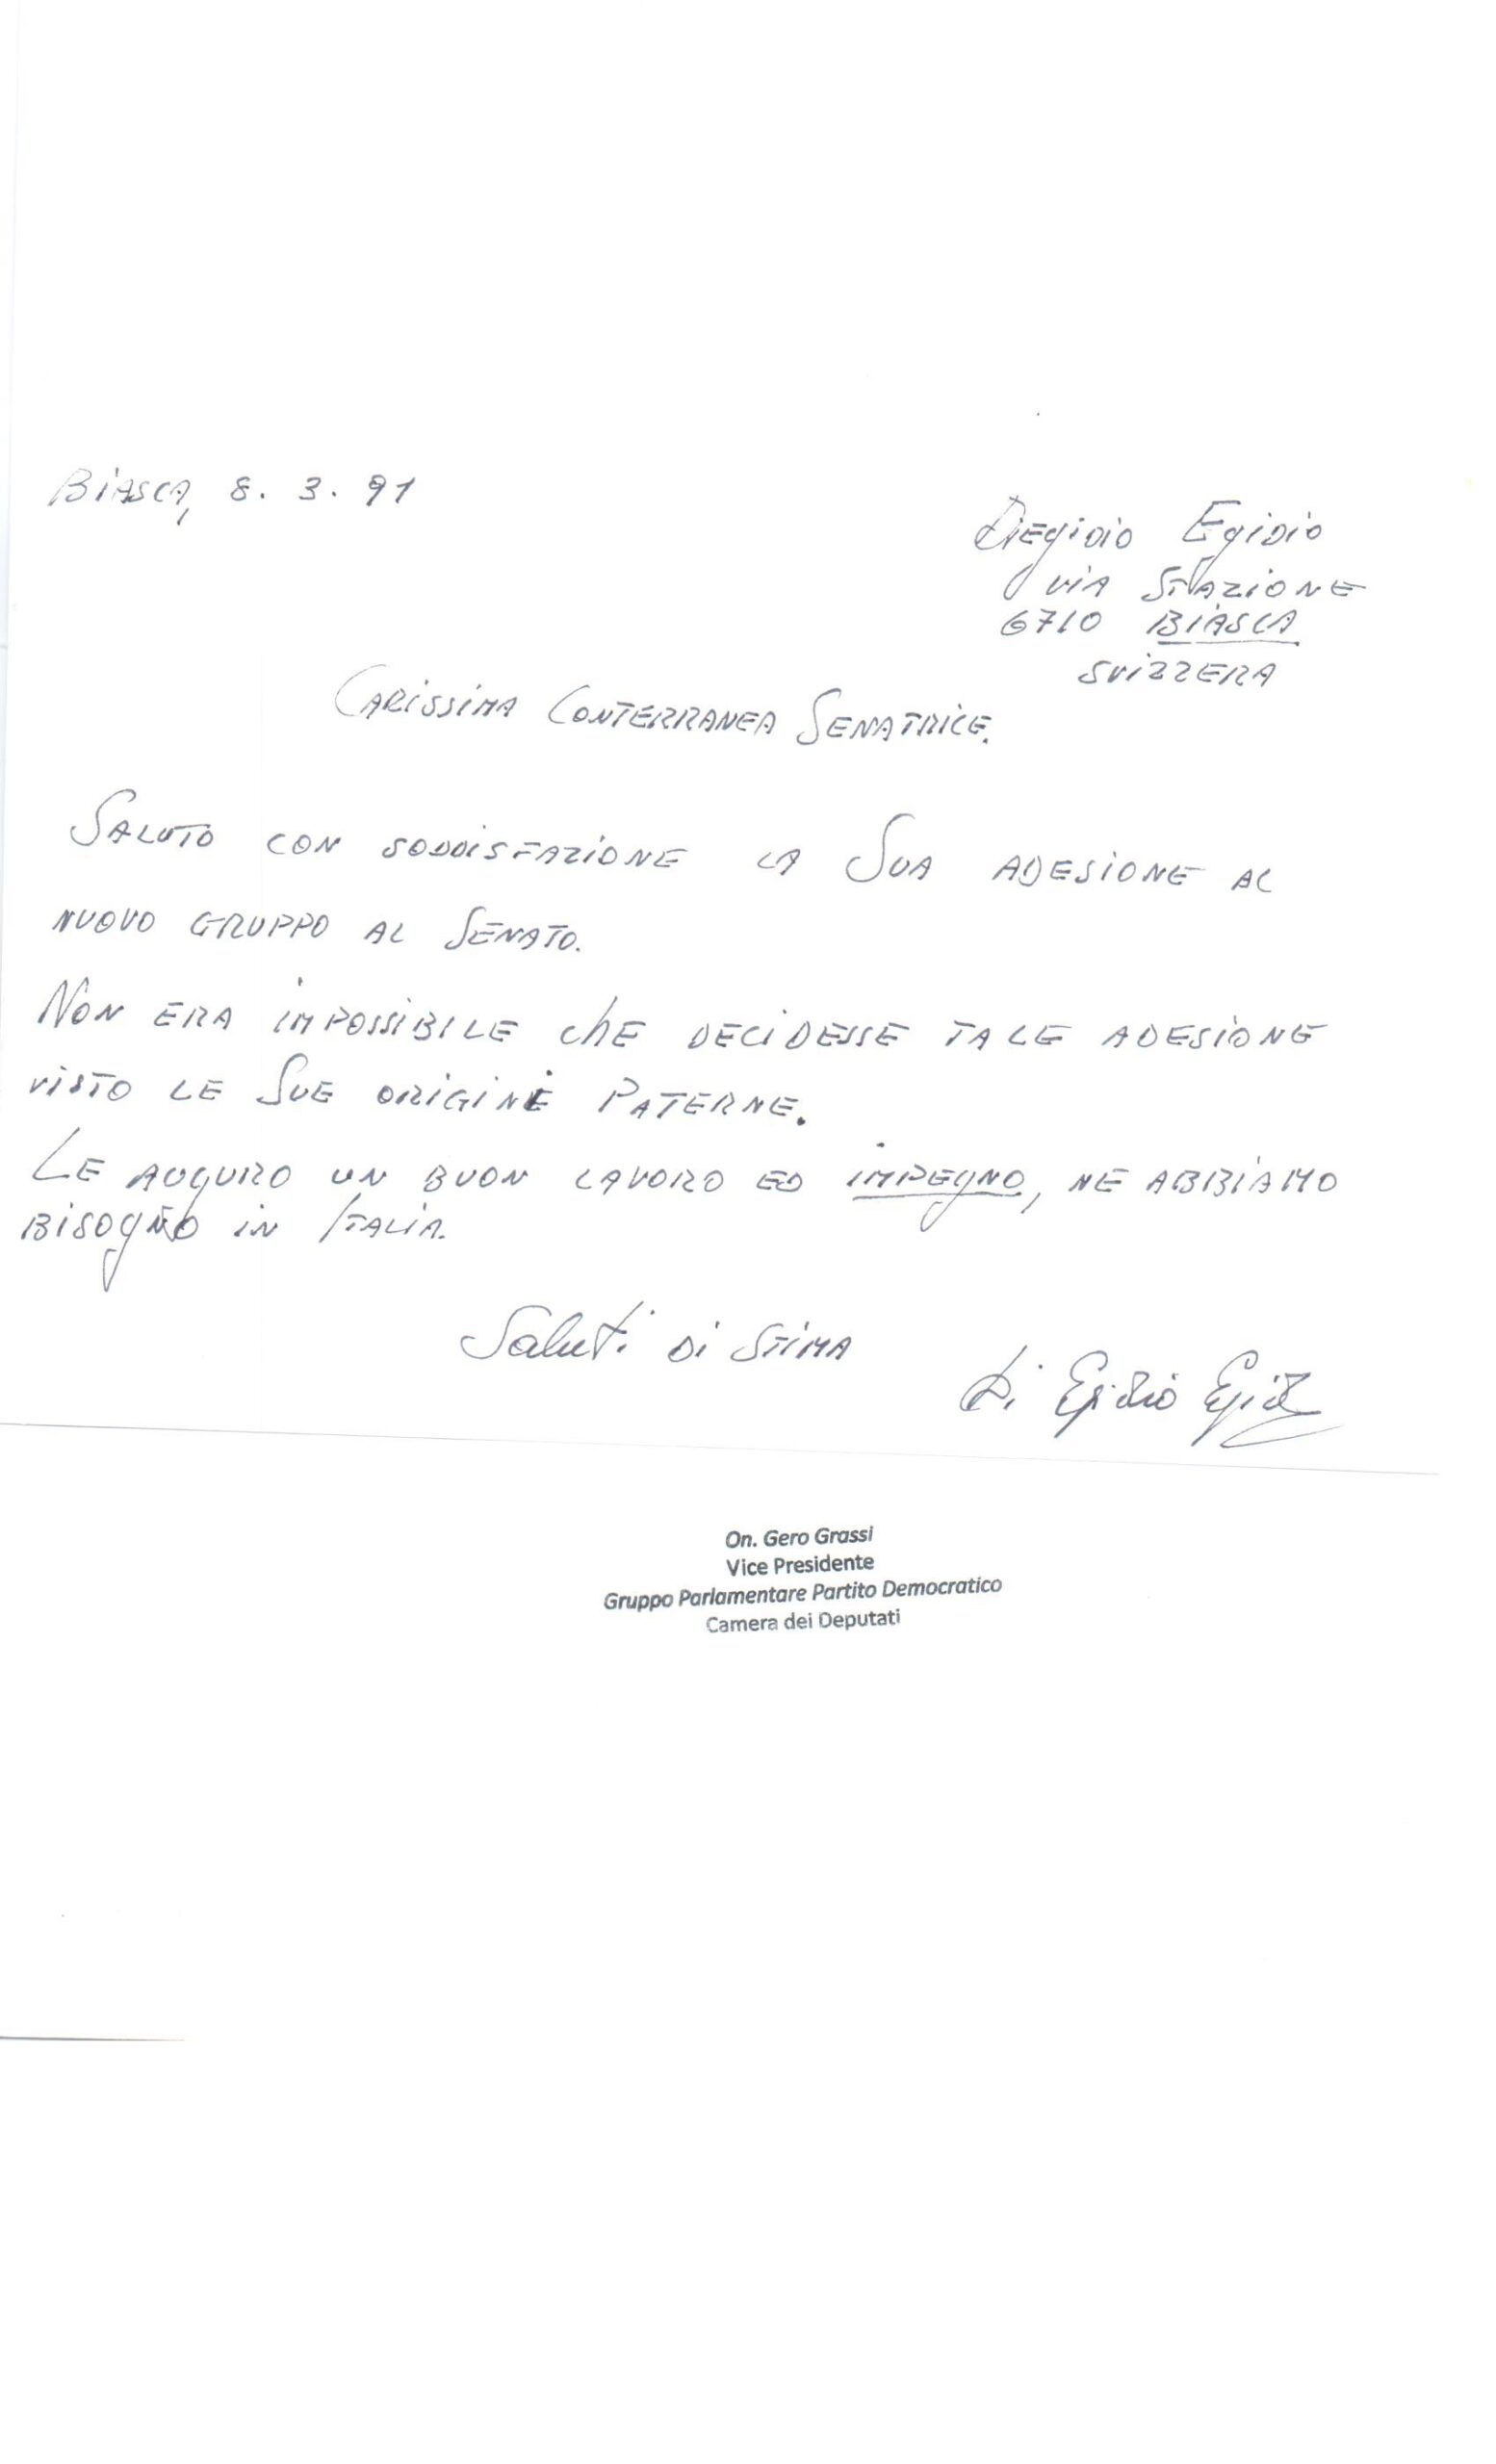 Biasca, 8. 3. 91
Diegidio Egidio
via Stazione
6710 BIASCA
SVIZZERA
CARISSIMA CONTERRANEA SENATRICE.
SALUTO CON SODDISFAZIONE LA SUA ADESIONE AL
NUOVO GRUPPO AL SENATO.
NON ERA IMPOSSIBILE CHE DECIDESSE TALE ADESIONE
VISTO LE SUE ORIGINE PATERNE.
LE AUGURO UN BUON LAVORO ED IMPEGNO, NE ABBIAMO
BISOGNO IN ITALIA.
Saluti DI STIMA
Di Egidio Egidio
On. Gero Grassi
Vice Presidente
Gruppo Parlamentare Partito Democratico
Camera dei Deputati